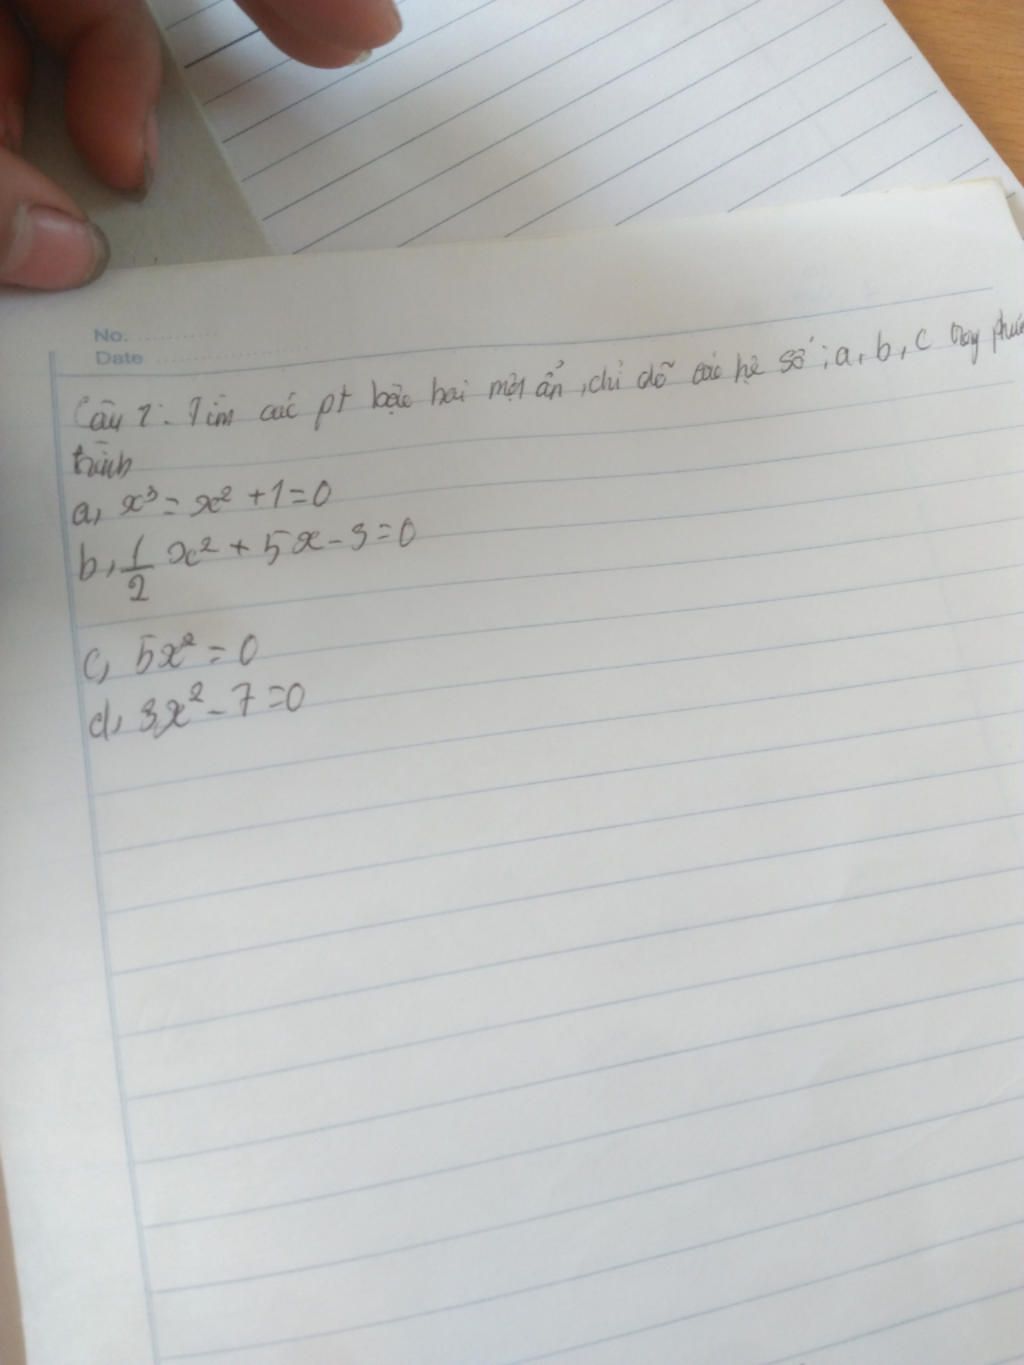 No. ..............
Date ..............
Câu 1: Tìm các pt bậc hai một ẩn, chỉ dõ các hệ số; a, b, c mỗi phươn
trình
a, x³ = x² + 1 = 0
b, 1/2 x² + 5x - 3 = 0
c, 5x² = 0
d, 3x² - 7 = 0